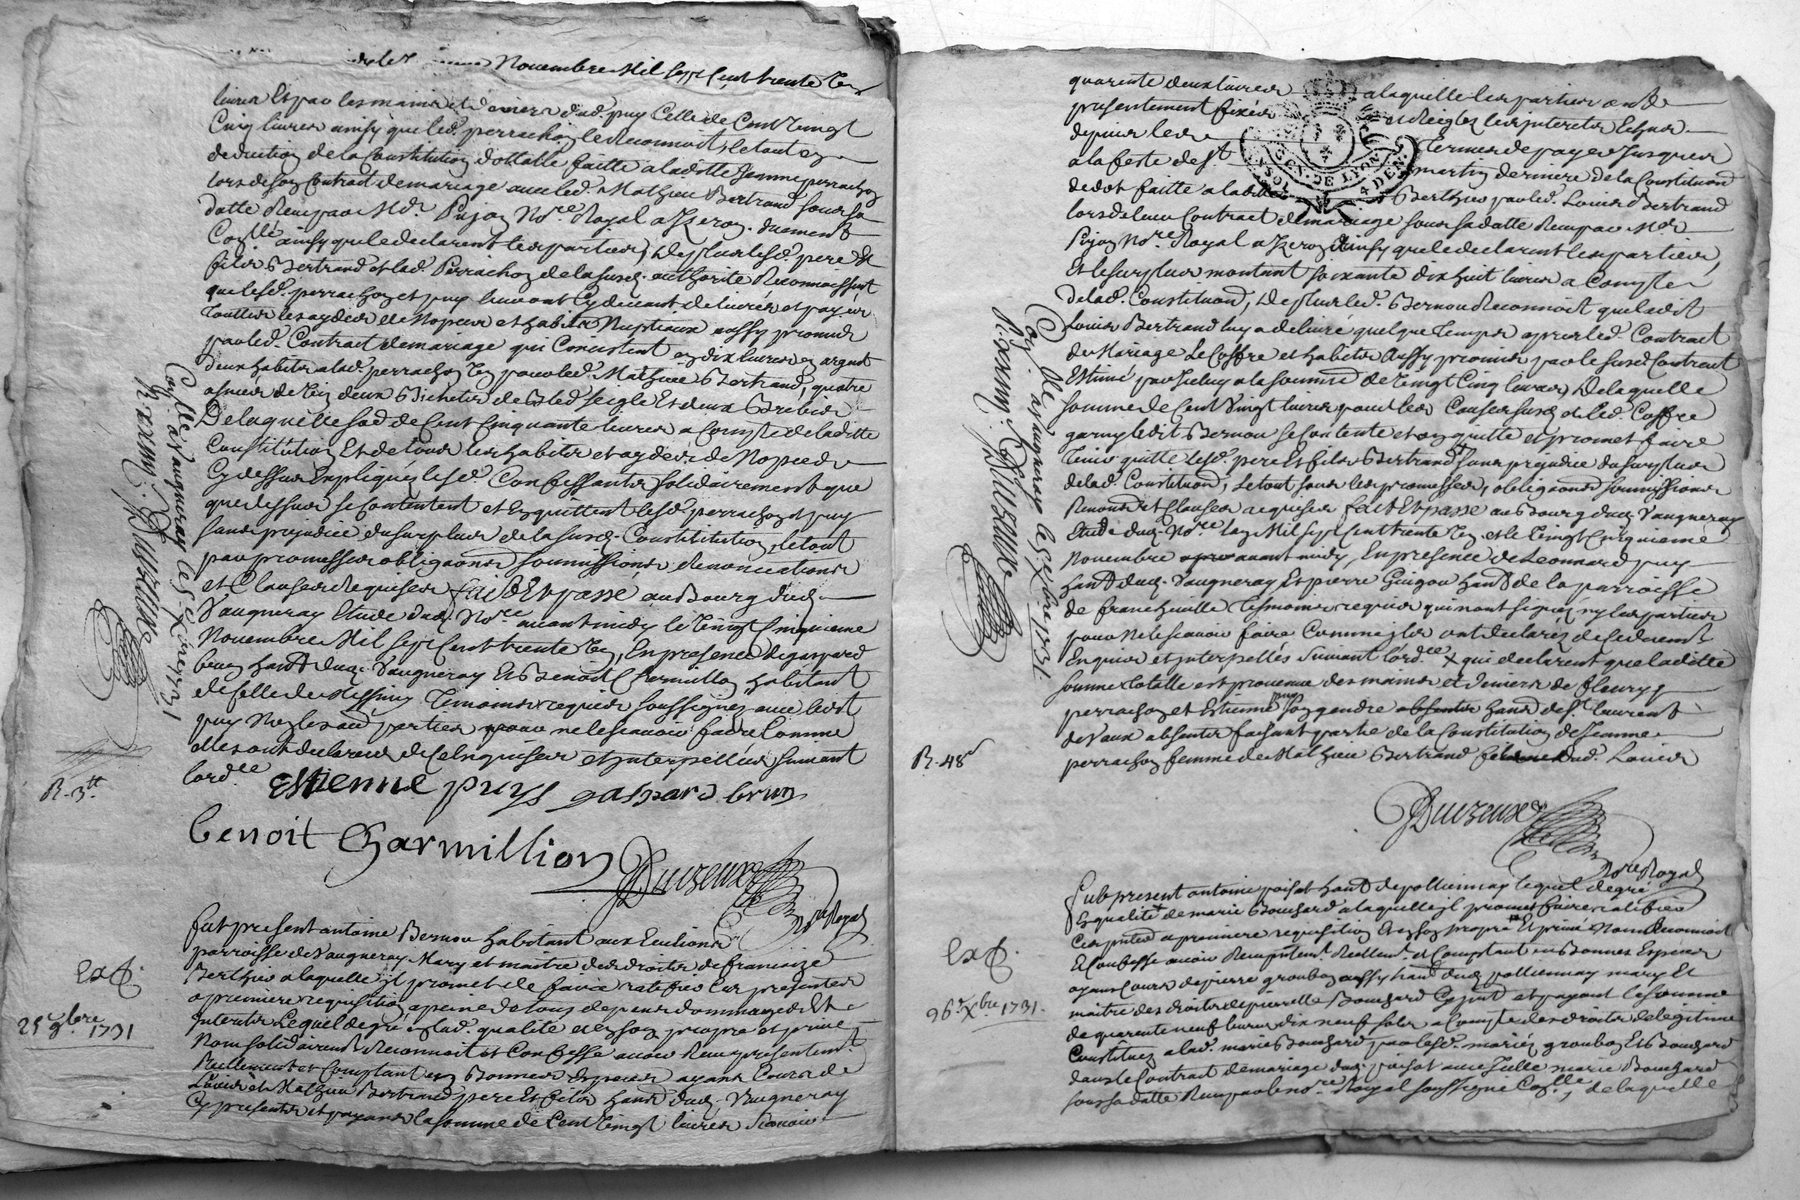 Novembre Mil sept Cent trente Un
livres Et par les mains et deniers dud. puy Celle de Cent vingt
Cinq livres ainsy que led. perrachon le reconnoit, le tout en
deduction de la Constitution dottalle faitte a laditte Jeanne perrachon
lors de son Contrat de mariage avec led. Mathieu Bertrand sous sa
datte Receu par Mr. Pujon Nore Royal a Izeron duement
Conllé ainsy que le declarent les parties, De plus lesd. pere Et
fils Bertrand et lad. Perrachon de la susd. authorité Reconnoissent
que lesd. perrachon et puy leur ont Cy devant delivrés et payér
touttes les aydes de Nopces et habits Nuptiaux aussy promis
par led. Contract de mariage qui Consistent en dix livres en argent
deux habits a lad. perrachon Un pour led. Mathieu Bertrand, quatre
asnées de vin deux Bichets de Bled seigle Et deux Brebis
De laquelle so. de Cent Cinquante livres a Compte de laditte
Constitution Et de tous les habits et aydes de Nopces
Cy dessus Expliqués lesd. Confessants solidairement que
que dessus se Contentent et En quittent lesd. perrachon et puy
sans prejudice du surplus de la susd. Constitution, le tout
par promesses obligaons soumissions renonciations
et Clauses Requises fait Et passé au Bourg dud.
Vaugneray Etude dud. Nore avant midy le vingt Cinquieme
Novembre Mil sept Cent trente Un, En presence de gaspard
brun hant dud. Vaugneray Et Benoit Charmillon habitant
de celle de Messimy Temoins requis soussignez avec ledt
puy Non les aud. parties pour ne le scavoir faire Comme
elles ont declarées de ce Enquises et interpellées suivant
lordce
Estienne puys gaspard brun
benoit Charmillion
Duizeux
Nre Royal
Conllé a Vaugneray les
R. 3tt
fut present antoine Bernou habitant aux Eulions
parroisse de Vaugneray Mary et maitre des droits de francoize
Berthier a laquelle il promet de faire ratifier Ces presentes
a premiere requisition a peine de tous depens dommages Et
Interets Lequel de gré Esd. qualité et en son propre et privé
Nom solidairemt Reconnoit et Confesse avoir Receu presentemt
Reellement et Comptant en Bonnes Especes ayant Cours de
Louis et Mathieu Bertrand pere Et fils hants dud. Vaugneray
Cy presents et payants la somme de Cent vingt livres scavoir
Exp.
25e 9bre 1731
quarente deux livres a laquelle les parties ont
presentement fixés et Reiglez les interets Echus
depuis les termes de payer Jusques
a la feste de St martin derniere de la Constituon
de dot faitte a laditte Berthier par led. Louis Bertrand
lors de leur Contract de mariage sous sa datte Receu par Mr
Pujon Nore Royal a Izeron ainsy que le declarent les parties,
Et le surplus montant soixante dix huit livres a Compte
de lad. Constituon, De plus led. Bernou Reconnoit que ledit
Louis Bertrand luy a delivré quelque Temps apres led. Contract
de Mariage Le Coffre et habits Aussy promis par le susd. Contract
Estimé par Iceluy a la somme de vingt Cinq livres, De laquelle
somme de Cent Vingt livres pour les Causes susd. et led. Coffre
garny ledit Bernou se Contente et en quitte et promet faire
tenir quitte lesd. pere Et fils Bertrand sans prejudice du surplus
de lad. Constituon, Le tout sous les promesses, obligaons soumissions
Renonon et Clauses requises fait Et passé au Bourg dud. Vaugneray
Etude dud. Nore lan Mil sept Cent trente Un et le vingt Cinquieme
Novembre avant midy, En presence de Leonnard puy
hant dud. Vaugneray Et pierre Guigou hant de la parroisse
de francheville Tesmoins requis qui n'ont signés ny les parties
pour ne le scavoir faire Comme ils ont declarés de ce duement
Enquis et interpellés suivant lordce x qui declarent que laditte
somme totalle est provenue des mains et deniers de fleury
perrachon et Estienne puy son gendre hants de St laurent
de Vaux absents faisant partie de la Constitution de Jeanne
perrachon femme de Mathieu Bertrand fils dud. Louis
Duizeux
Nre Royal
GEN. DE LYON
4 DEN.
R. 48s
Exp.
26e Xbre 1731.
fut present antoine poisat hant de pollionnay lequel de gré
En qualité de marie Bouchard a laquelle il promet faire ratifier
Ces pntes a premiere requisition Et En son propre Et privé Nom Reconnoit
Et Confesse avoir Receu pntemt Reellemt et Comptant en Bonnes Especes
ayant Cours de pierre groubon aussy hant dud. pollionnay mary Et
maitre des droits de pierrette Bouchard Cy pnt et payant la somme
de quarente neuf livres dix neuf sols a Compte des droits de legitime
Constituez a lad. marie Bouchard par lesd. mariez groubon Et Bouchard
dans le Contract de mariage dud. poisat avec Icelle marie Bouchard
sous sa datte Receu par le nore Royal soussigné Conllé, de laquelle